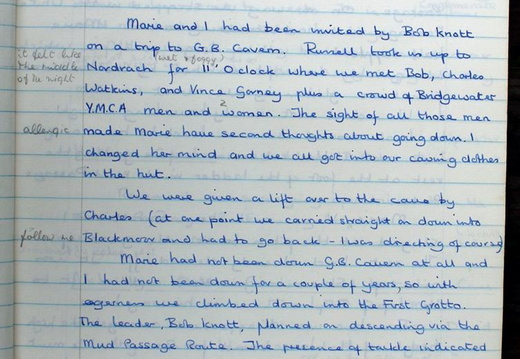 Marie and I had been invited by Bob Knott
on a trip to G.B. Cavern. Russell took us up to
it felt like
the middle
of the night
(wet & foggy)
Nordrach for 11 O'clock where we met Bob, Charles
Watkins, and Vince Gorney plus a crowd of Bridgewater
Y.M.C.A men and 2 women. The sight of all those men
allergic
made Marie have second thoughts about going down. I
changed her mind and we all got into our caving clothes
in the hut.
We were given a lift over to the cave by
Charles (at one point we carried straight on down into
follow me
Blackmoor and had to go back - I was directing of course)
Marie had not been down G.B. Cavern at all and
I had not been down for a couple of years, so with
eagerness we climbed down into the First Grotto.
The leader, Bob Knott, planned on descending via the
Mud Passage Route. The presence of tackle indicated